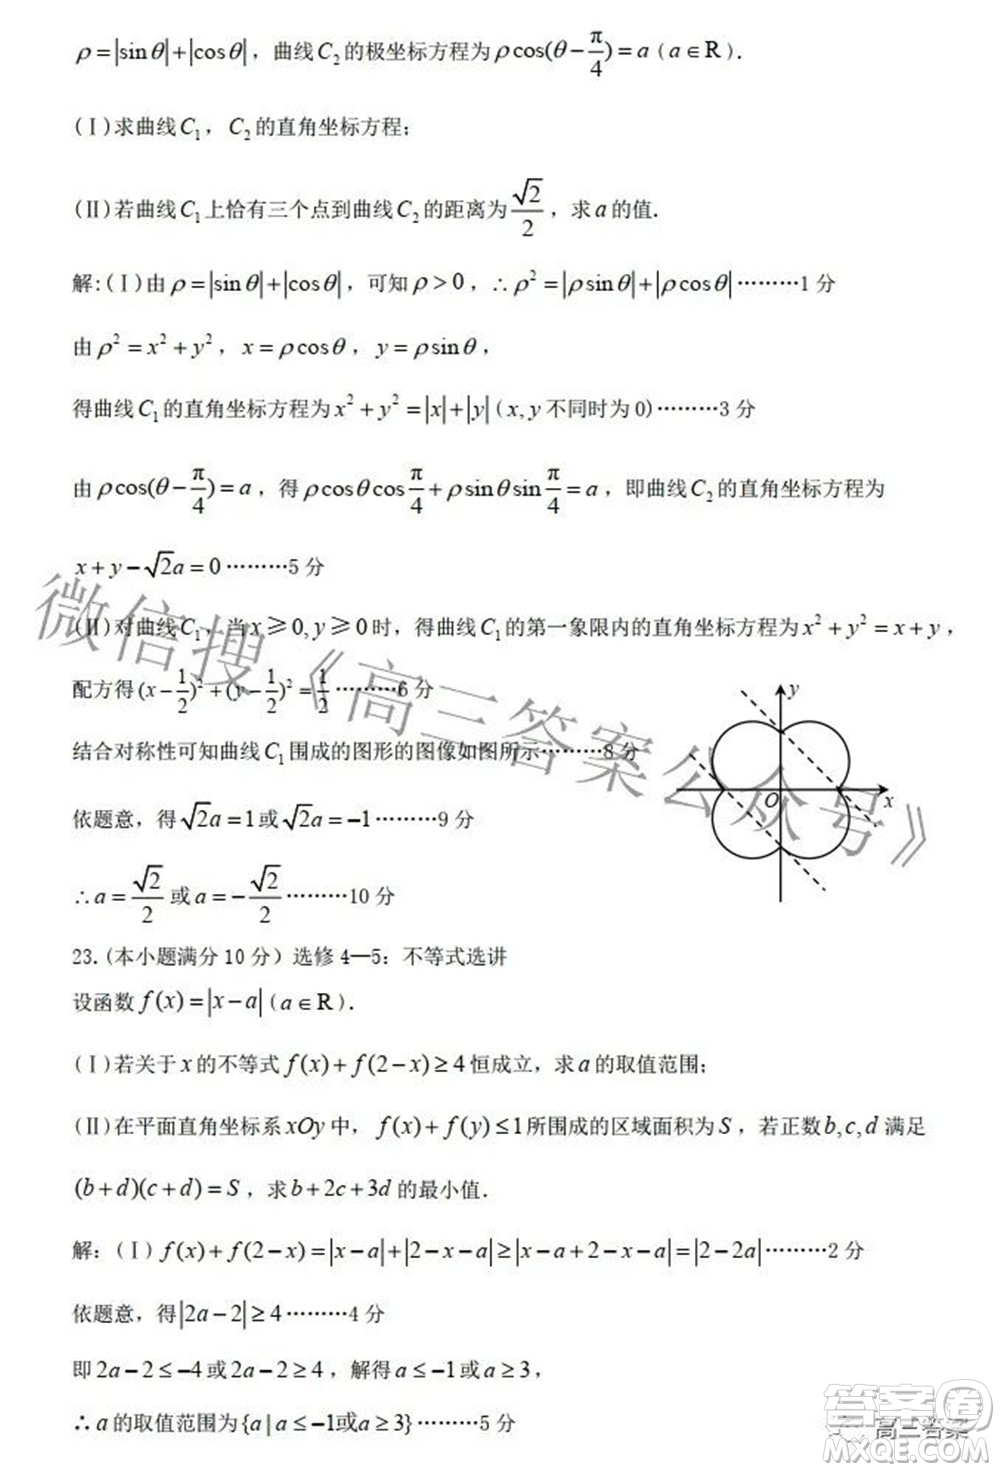 ρ=|sinθ|+|cosθ|，曲线C₂的极坐标方程为ρcos(θ-π/4)=a(a∈R).
(Ⅰ)求曲线C₁，C₂的直角坐标方程；
(Ⅱ)若曲线C₁上恰有三个点到曲线C₂的距离为√2/2，求a的值.
解:(Ⅰ)由ρ=|sinθ|+|cosθ|，可知ρ>0，∴ρ²=|ρsinθ|+|ρcosθ|………1分
由ρ²=x²+y²，x=ρcosθ，y=ρsinθ，
得曲线C₁的直角坐标方程为x²+y²=|x|+|y|(x,y不同时为0)………3分
由ρcos(θ-π/4)=a，得ρcosθcosπ/4+ρsinθsinπ/4=a，即曲线C₂的直角坐标方程为
x+y-√2a=0………5分
(Ⅱ)对曲线C₁，当x≥0,y≥0时，得曲线C₁的第一象限内的直角坐标方程为x²+y²=x+y，
配方得(x-1/2)²+(y-1/2)²=1/2………6分
结合对称性可知曲线C₁围成的图形的图像如图所示………8分
依题意，得√2a=1或√2a=-1………9分
∴a=√2/2或a=-√2/2………10分
y
O
x
23.(本小题满分10分)选修4—5：不等式选讲
设函数f(x)=|x-a|(a∈R).
(Ⅰ)若关于x的不等式f(x)+f(2-x)≥4恒成立，求a的取值范围；
(Ⅱ)在平面直角坐标系xOy中，f(x)+f(y)≤1所围成的区域面积为S，若正数b,c,d满足
(b+d)(c+d)=S，求b+2c+3d的最小值.
解：(Ⅰ)f(x)+f(2-x)=|x-a|+|2-x-a|≥|x-a+2-x-a|=|2-2a|………2分
依题意，得|2a-2|≥4………4分
即2a-2≤-4或2a-2≥4，解得a≤-1或a≥3，
∴a的取值范围为{a|a≤-1或a≥3}………5分
微信搜《高三答案公众号》
答案圈
高三答案
MXQE.COM